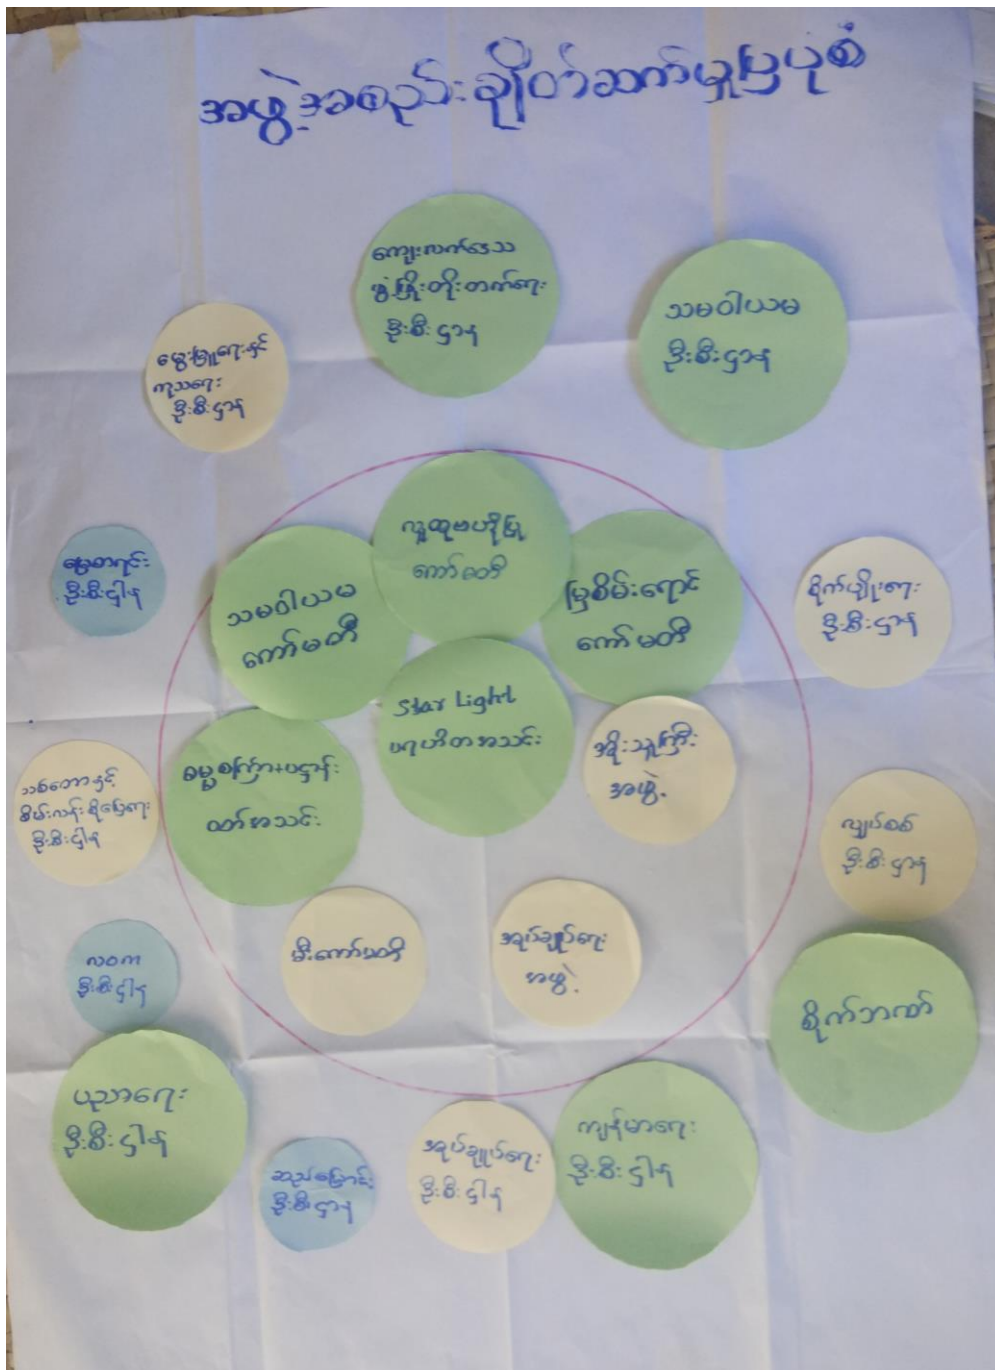 အဖွဲ့အစည်းချိတ်ဆက်မှုပြပုံစံ
ကျေးလက်ဒေသ
ဖွံ့ဖြိုးတိုးတက်ရေး
ဦးစီးဌာန
သမဝါယမ
ဦးစီးဌာန
မွေးမြူရေးနှင့်
ကုသရေး
ဦးစီးဌာန
လူထုဗဟိုပြု
ကော်မတီ
မြေစာရင်း
ဦးစီးဌါန
သမဝါယမ
ကော်မတီ
မြစိမ်းရောင်
ကော်မတီ
စိုက်ပျိုးရေး
ဦးစီးဌာန
Star Light
ပရဟိတအသင်း
အိုးသူကြီး
အဖွဲ့
သစ်တောနှင့်
စိမ်းလန်းစိုပြေရေး
ဦးစီးဌါန
ဓမ္မစကြာ+ပဋ္ဌာန်း
ဃတ်အသင်း
လျှပ်စစ်
ဦးစီးဌာန
လဝက
ဦးစီးဌါန
မီးကော်မတီ
အုပ်ချုပ်ရေး
အဖွဲ့
စိုက်ဘဏ်
ပညာရေး
ဦးစီးဌါန
ဆည်မြောင်း
ဦးစီးဌာန
အုပ်ချုပ်ရေး
ဦးစီးဌါန
ကျန်မာရေး
ဦးစီးဌါန